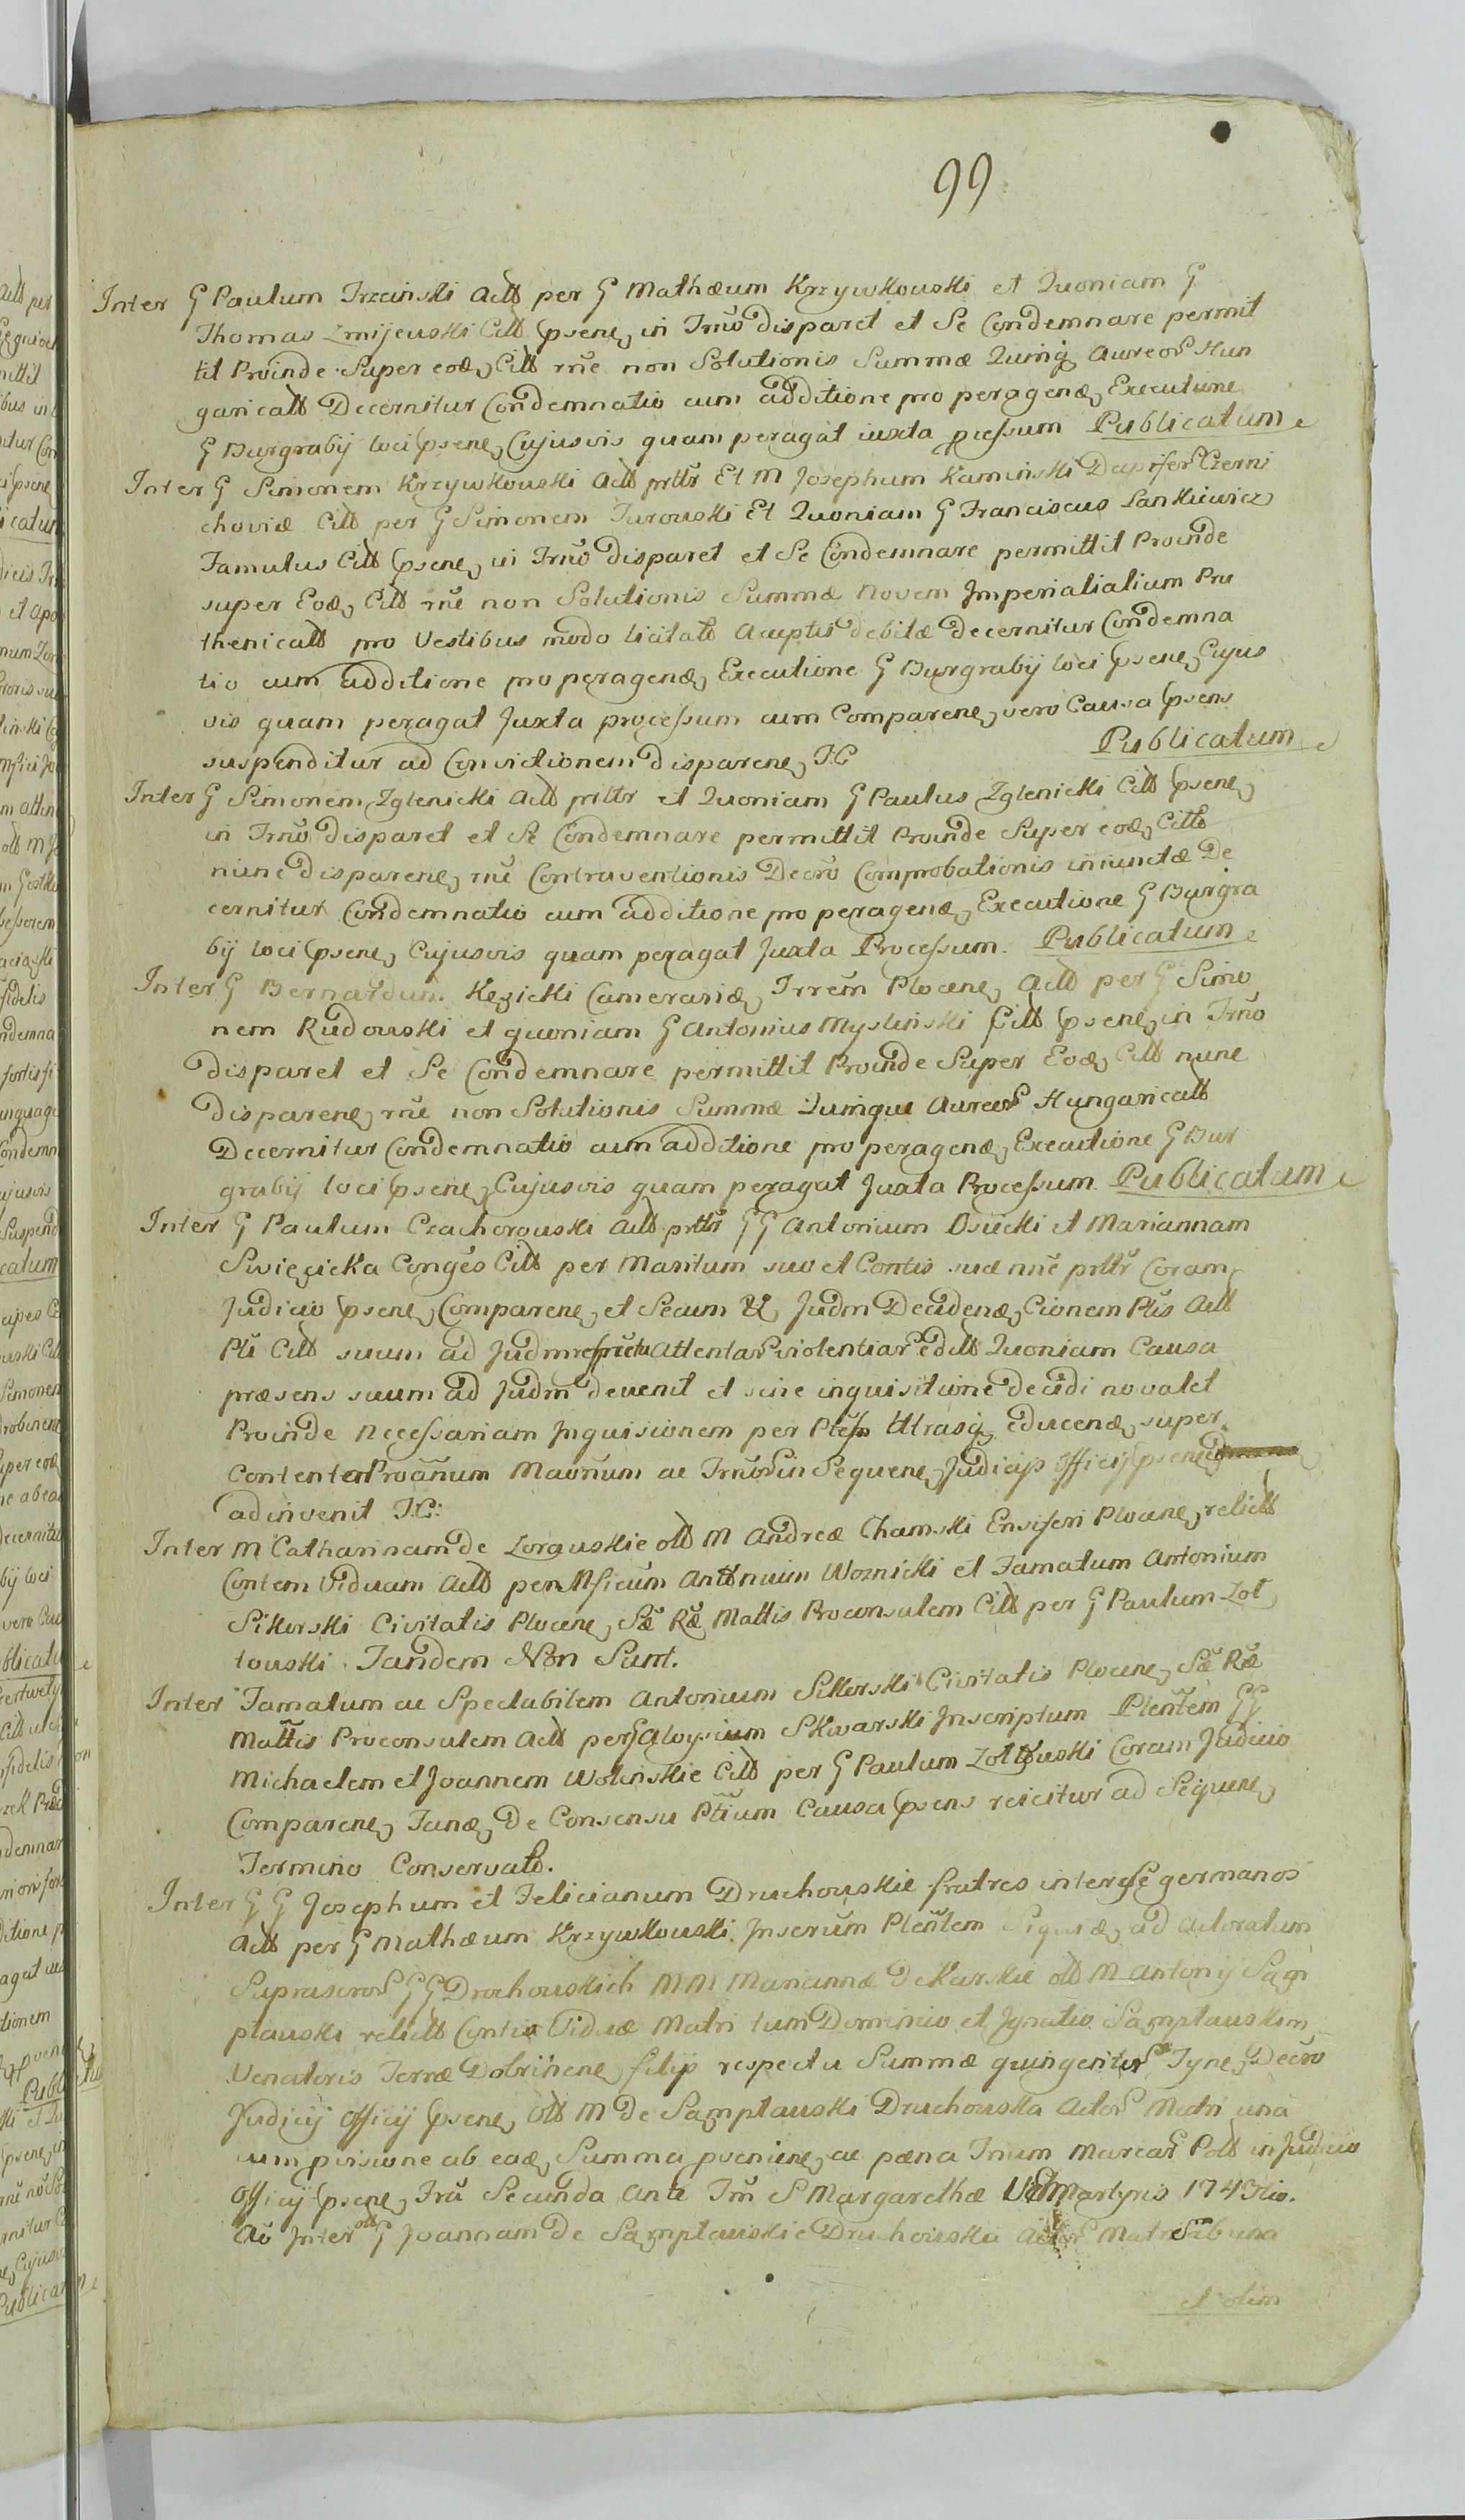 99
Inter G Paulum Trzcinski Actt per G Mathæum Krzywkowski et Quoniam G
Thomas Zmijewski Citt psene in Trno disparet et Se Condemnare permit
tit Proinde Super eod Citt rne non Solutionis Summæ Quinq Aureor Hun
garicall Decernitur Condemnatio cum additione pro peragen Executione
G Burgrabij loci psene Cujusvis quam peragat iuxta pcessum Publicatum
Inter G Simonem Krzywkowski Actt prttr Et M Josephum Kaminski Dapifer Czerni
choviæ Citt per G Simonem Turowski Et Quoniam G Franciscus Lankiewicz
Famulus Citt psene in Trno disparet et Se Condemnare permittit Proinde
super Eod Citt rne non Solutionis Summæ Novem Imperialialium Pru
thenicall pro Vestibus modo licitato Acceptis debitæ decernitur Condemna
tio cum additione pro peragen Executione G Burgrabij loci psene Cujus
vis quam peragat Juxta processum cum Comparene vero Causa psens
suspenditur ad Convictionem disparene J.C Publicatum
Inter G Simonem Zglenicki Actt prttr et Quoniam G Paulus Zglenicki Citt psene
in Trno disparet et Se Condemnare permittit Proinde Super eod Citto
nunc disparene rne Contraventionis Decro Comprobationis iniunctæ De
cernitur Condemnatio cum additione pro peragen Executione G Burgra
bij loci psene Cujusvis quam peragat Juxta Processum. Publicatum
Inter G Bernardum Kęzicki Camerariæ Trrem Plocene Actt per G Simo
nem Rudowski et quoniam G Antonius Mysliński Citt psene in Trno
disparet et Se Condemnare permittit Proinde Super Eod Citt nunc
disparene rne non Solutionis Summæ Quinque Aureor Hungaricall
Decernitur Condemnatio cum additione pro peragen Executione G Bur
grabij loci psene Cujusvis quam peragat Juxta Processum Publicatum
Inter G Paulum Czachorowski Actt prttr GG Antonium Osiecki et Mariannam
Swięcicka Conges Citt per Maritum suo et Contis suæ nne prttr Coram
Judicio psene Comparene et Secum Judm Deciden Cionem Ptis Actt
Pti Citt suum ad Judm respectu Attentar violentiar editt Quoniam Causa
præsens suum ad Judm devenit et sine inquisitione decidi no valet
Proinde Necessariam Inquisionem per Ptes Utrasq educen super
Contenter Proanum Maornum ac Trnor in Sequene Judicijs Officij psene
adinvenit J.C:
Inter M Catharinam de Zorawskie ott M Andreæ Chamski Ensiferi Plocene relictt
Contem Viduam Actt per Mficum Antonium Woznicki et Famatum Antonium
Sikorski Civitatis Plocene Sæ Ræ Mattis Proconsulem Citt per G Paulum Zot
towski Tandem Non Sunt.
Inter Famatum ac Spectabilem Antonium Sikorski Civitatis Plocene Sæ Ræ
Mattis Proconsulem Actt per G Aloysium Skwarski Inscriptum Plentem GG
Michaelem et Joannem Wolinskie Citt per G Paulum Zottowski Coram Judicio
Comparene Tan De Consensu Ptium Causa psens reicitur ad Sequene
Termino Conservato.
Inter GG Josephum et Felicianum Druchowskie fratres inter se germanos
Actt per G Mathæum Krzywkowski Inscrum Plentem ad Actoratum
Suprascror GG Druchowskich MM Mariannæ de Karskie ott M Antonij Sam
plawski relictt Contis Viduæ Matri tum Dominico et Ignatio Samplawskim
Venatoris Terræ Dobrinene filijs respectu Summæ quingentor Tyne Decro
Judicij Officij psene Ott M de Samplawski Druchowska Actor Matri una
cum pvisione ab ead Summa pveniene ac pæna Trium Marcar Poll in Judicio
Officij psene Fra Secunda Ante Frm S Margarethæ Martyris 174
Ao Inter ott G Joannam de Samplawskie Druchowska Actor Matr una
et olim